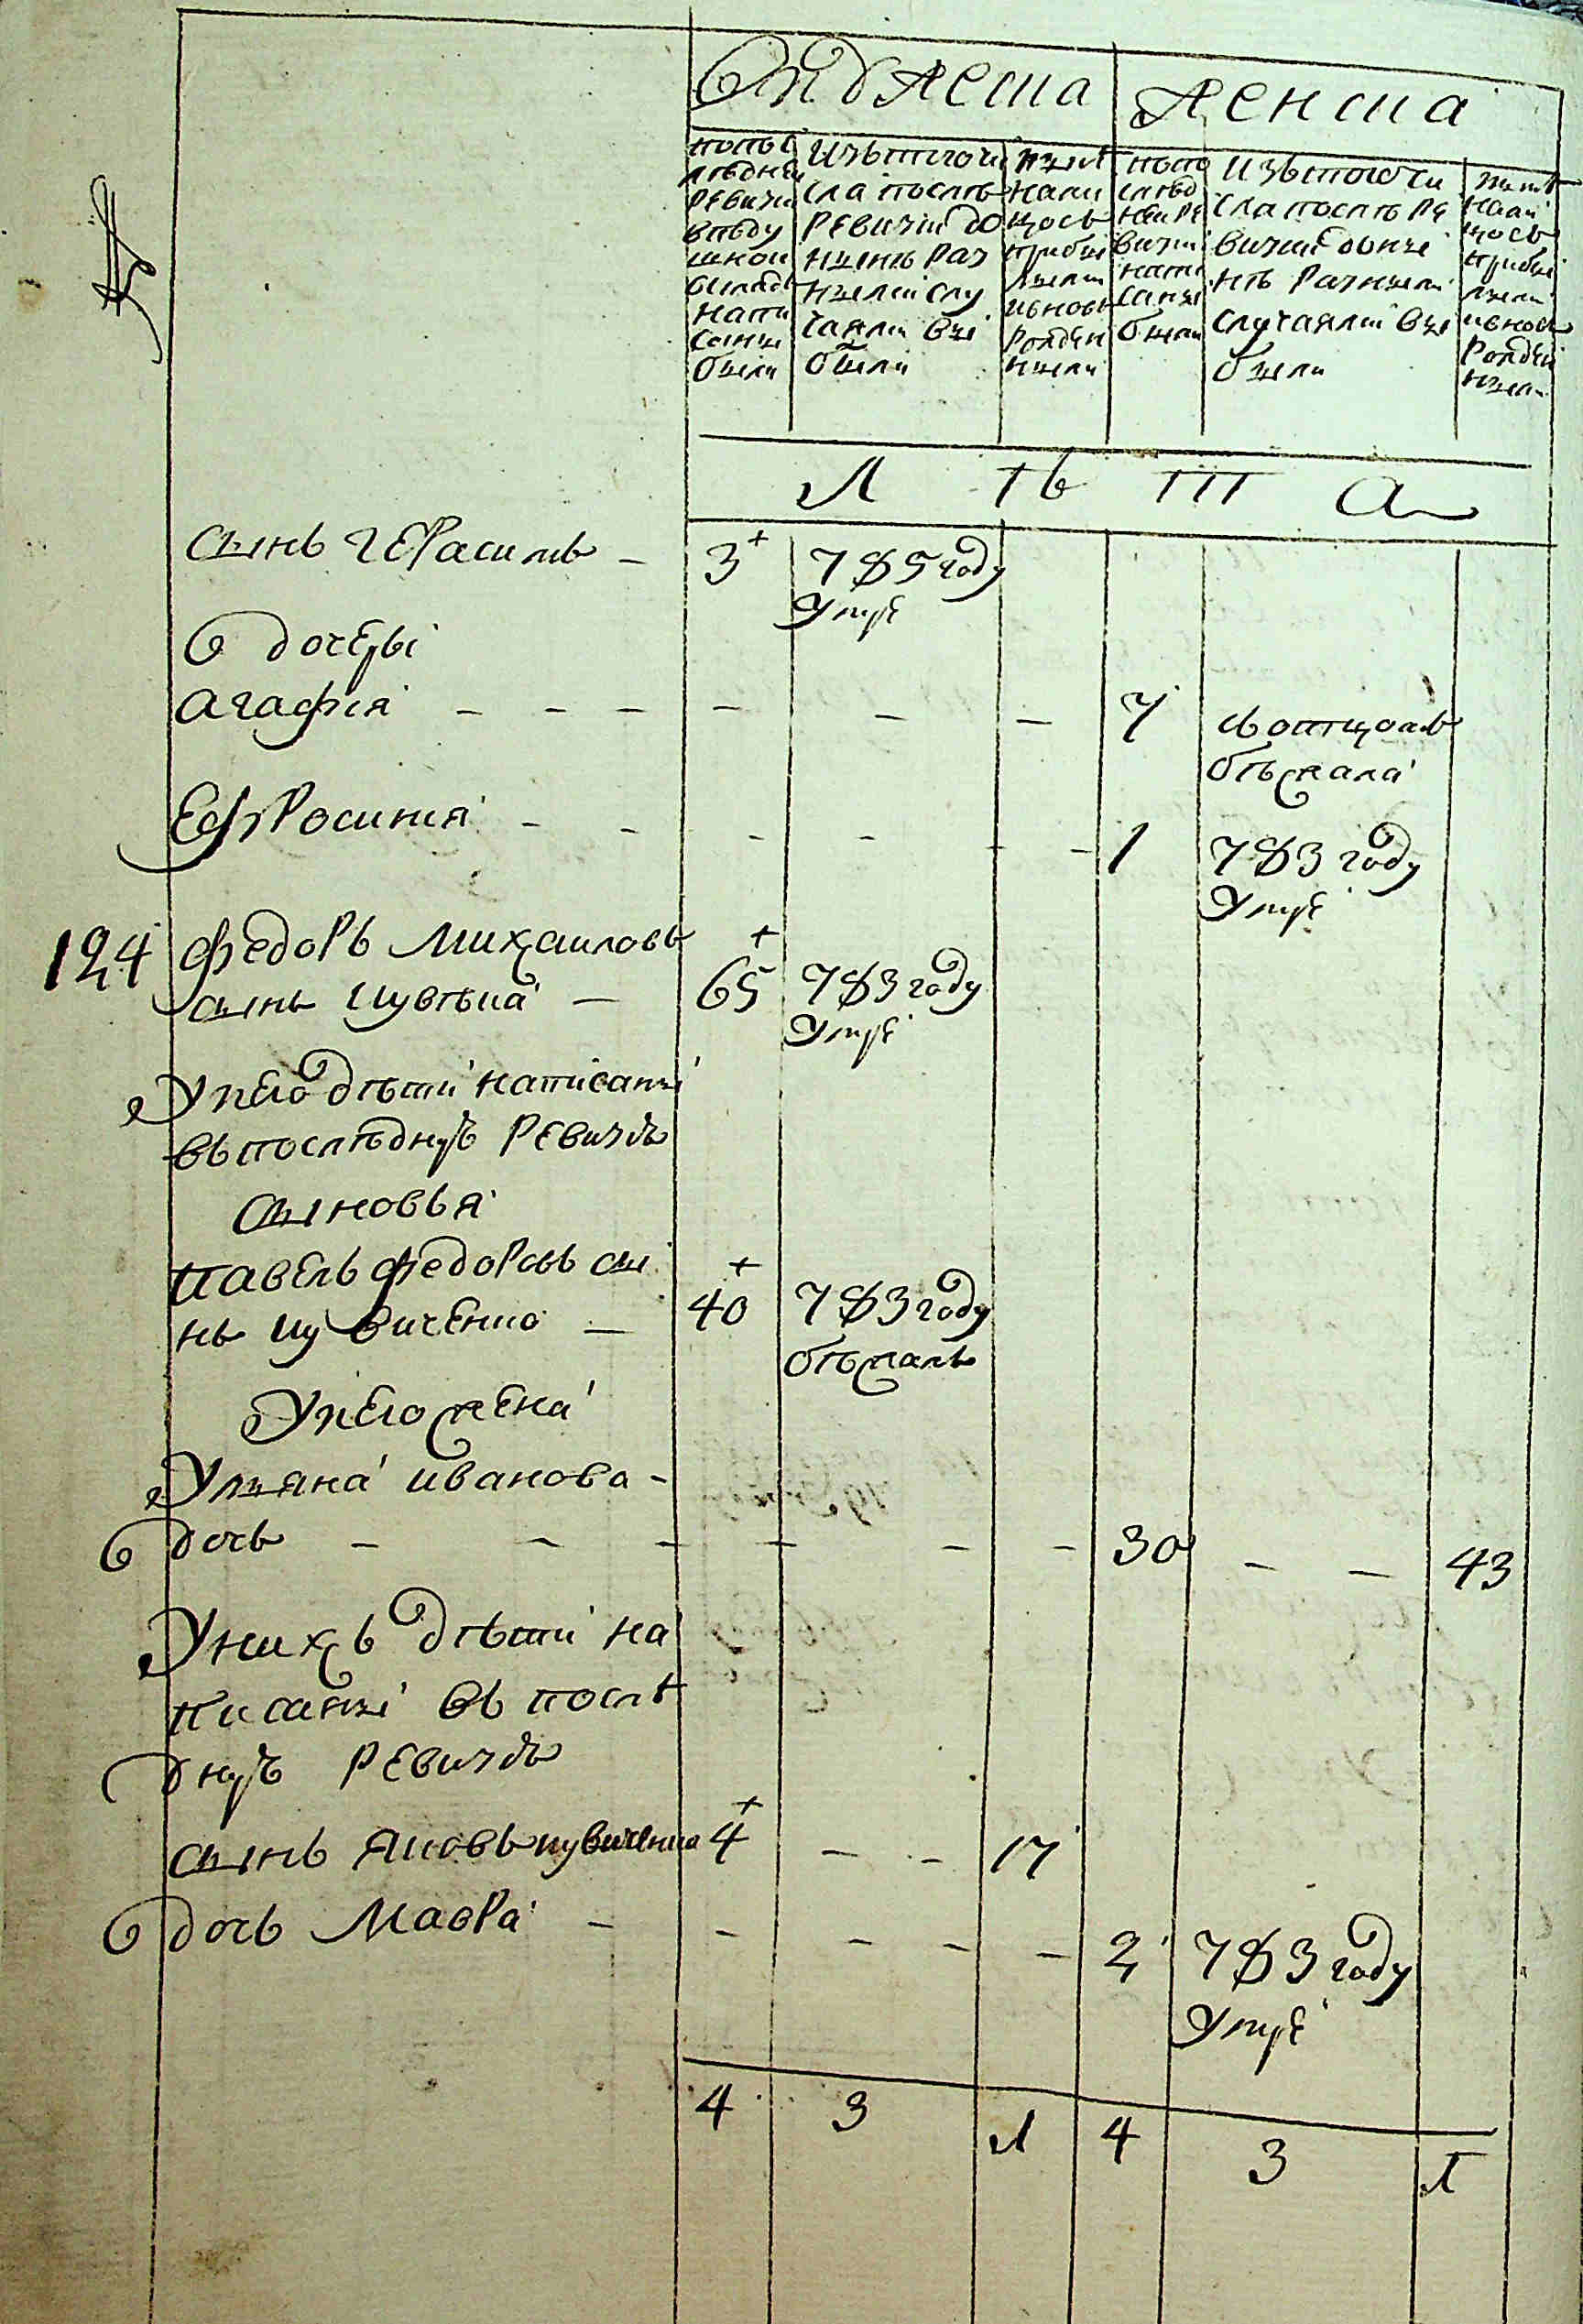 Мужеска Женска
попос
лѣдней
ревизи
въ поду
шной
складъ
напи
саны
были
изъ того чи
сла послѣ
ревизии до
нынѣ раз
ными слу
чаями вы
были
нынѣ
нали
цось
прибы
лыми
и вновь
рожден
ными
попо
слѣд
ней ре
визии
напи
саны
были
изъ того чи
сла послѣ ре
визии до ны
нѣ разными
случаями вы
были
нынѣ
нали
цось
прибы
лыми
и вновь
рожден
ными
Л ѣ т а
сынъ герасимъ – 3 785 году
умре
дочери
агафия – – – – – – 7 съ отцомъ
бѣжала
Ефросиния – – – – – – 1 783 году
умре
124 федоръ михаиловъ
сынъ цувѣка – 65 783 году
умре
у него дѣти написаны
въ последную ревизию
сыновья
павелъ федоровъ сы
нъ цувиченко – 40 783 году
бѣжалъ
у него жена
Ульяна иванова –
дочь – – – – – – 30 – – 43
у нихъ дѣти на
писаны въ послѣ
дную ревизию
сынъ яковъ цувиченко 4 – – 17
дочь мавра – – – – – 2 783 году
умре
4 3 1 4 3 1